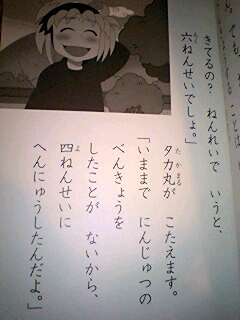 きてるの？　ねんれいで　いうと、
六ねんせいでしょ。」
タカ丸が　こたえます。
「いままで　にんじゅつの
べんきょうを
したことが　ないから、
四ねんせいに
へんにゅうしたんだよ。」